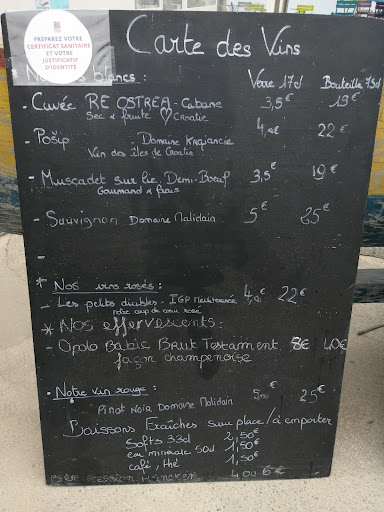 PRÉPAREZ VOTRE
CERTIFICAT SANITAIRE
ET VOTRE
JUSTIFICATIF
D'IDENTITÉ
Carte des Vins
blancs : Verre 17cl Bouteille 75cl
- Cuvée RE OSTREA - Cabane 3,5€ 19€
Sec & fruité ♡ Croatie
- Pošip - Domaine Krajancic 22€
Vin des îles de Croatie
- Muscadet sur lie Demi-Boeuf 3,5€ 19€
Gourmand &
- Sauvignon Domaine Malidain 5€ 25€
-
* Nos vins rosés :
- Les petits diables - IGP Méditerranée 22€
notre coup de cœur rosé
* Nos effervescents :
- Opolo Babic Brut Testament 8€ 40€
façon champenoise
- Notre vin rouge :
Pinot Noir Domaine Malidain 25€
Boissons Fraîches sur place/à emporter
Softs 33cl 2,50€
eau minérale 50cl 1,50€
café, thé 1,50€
4 ou 6€